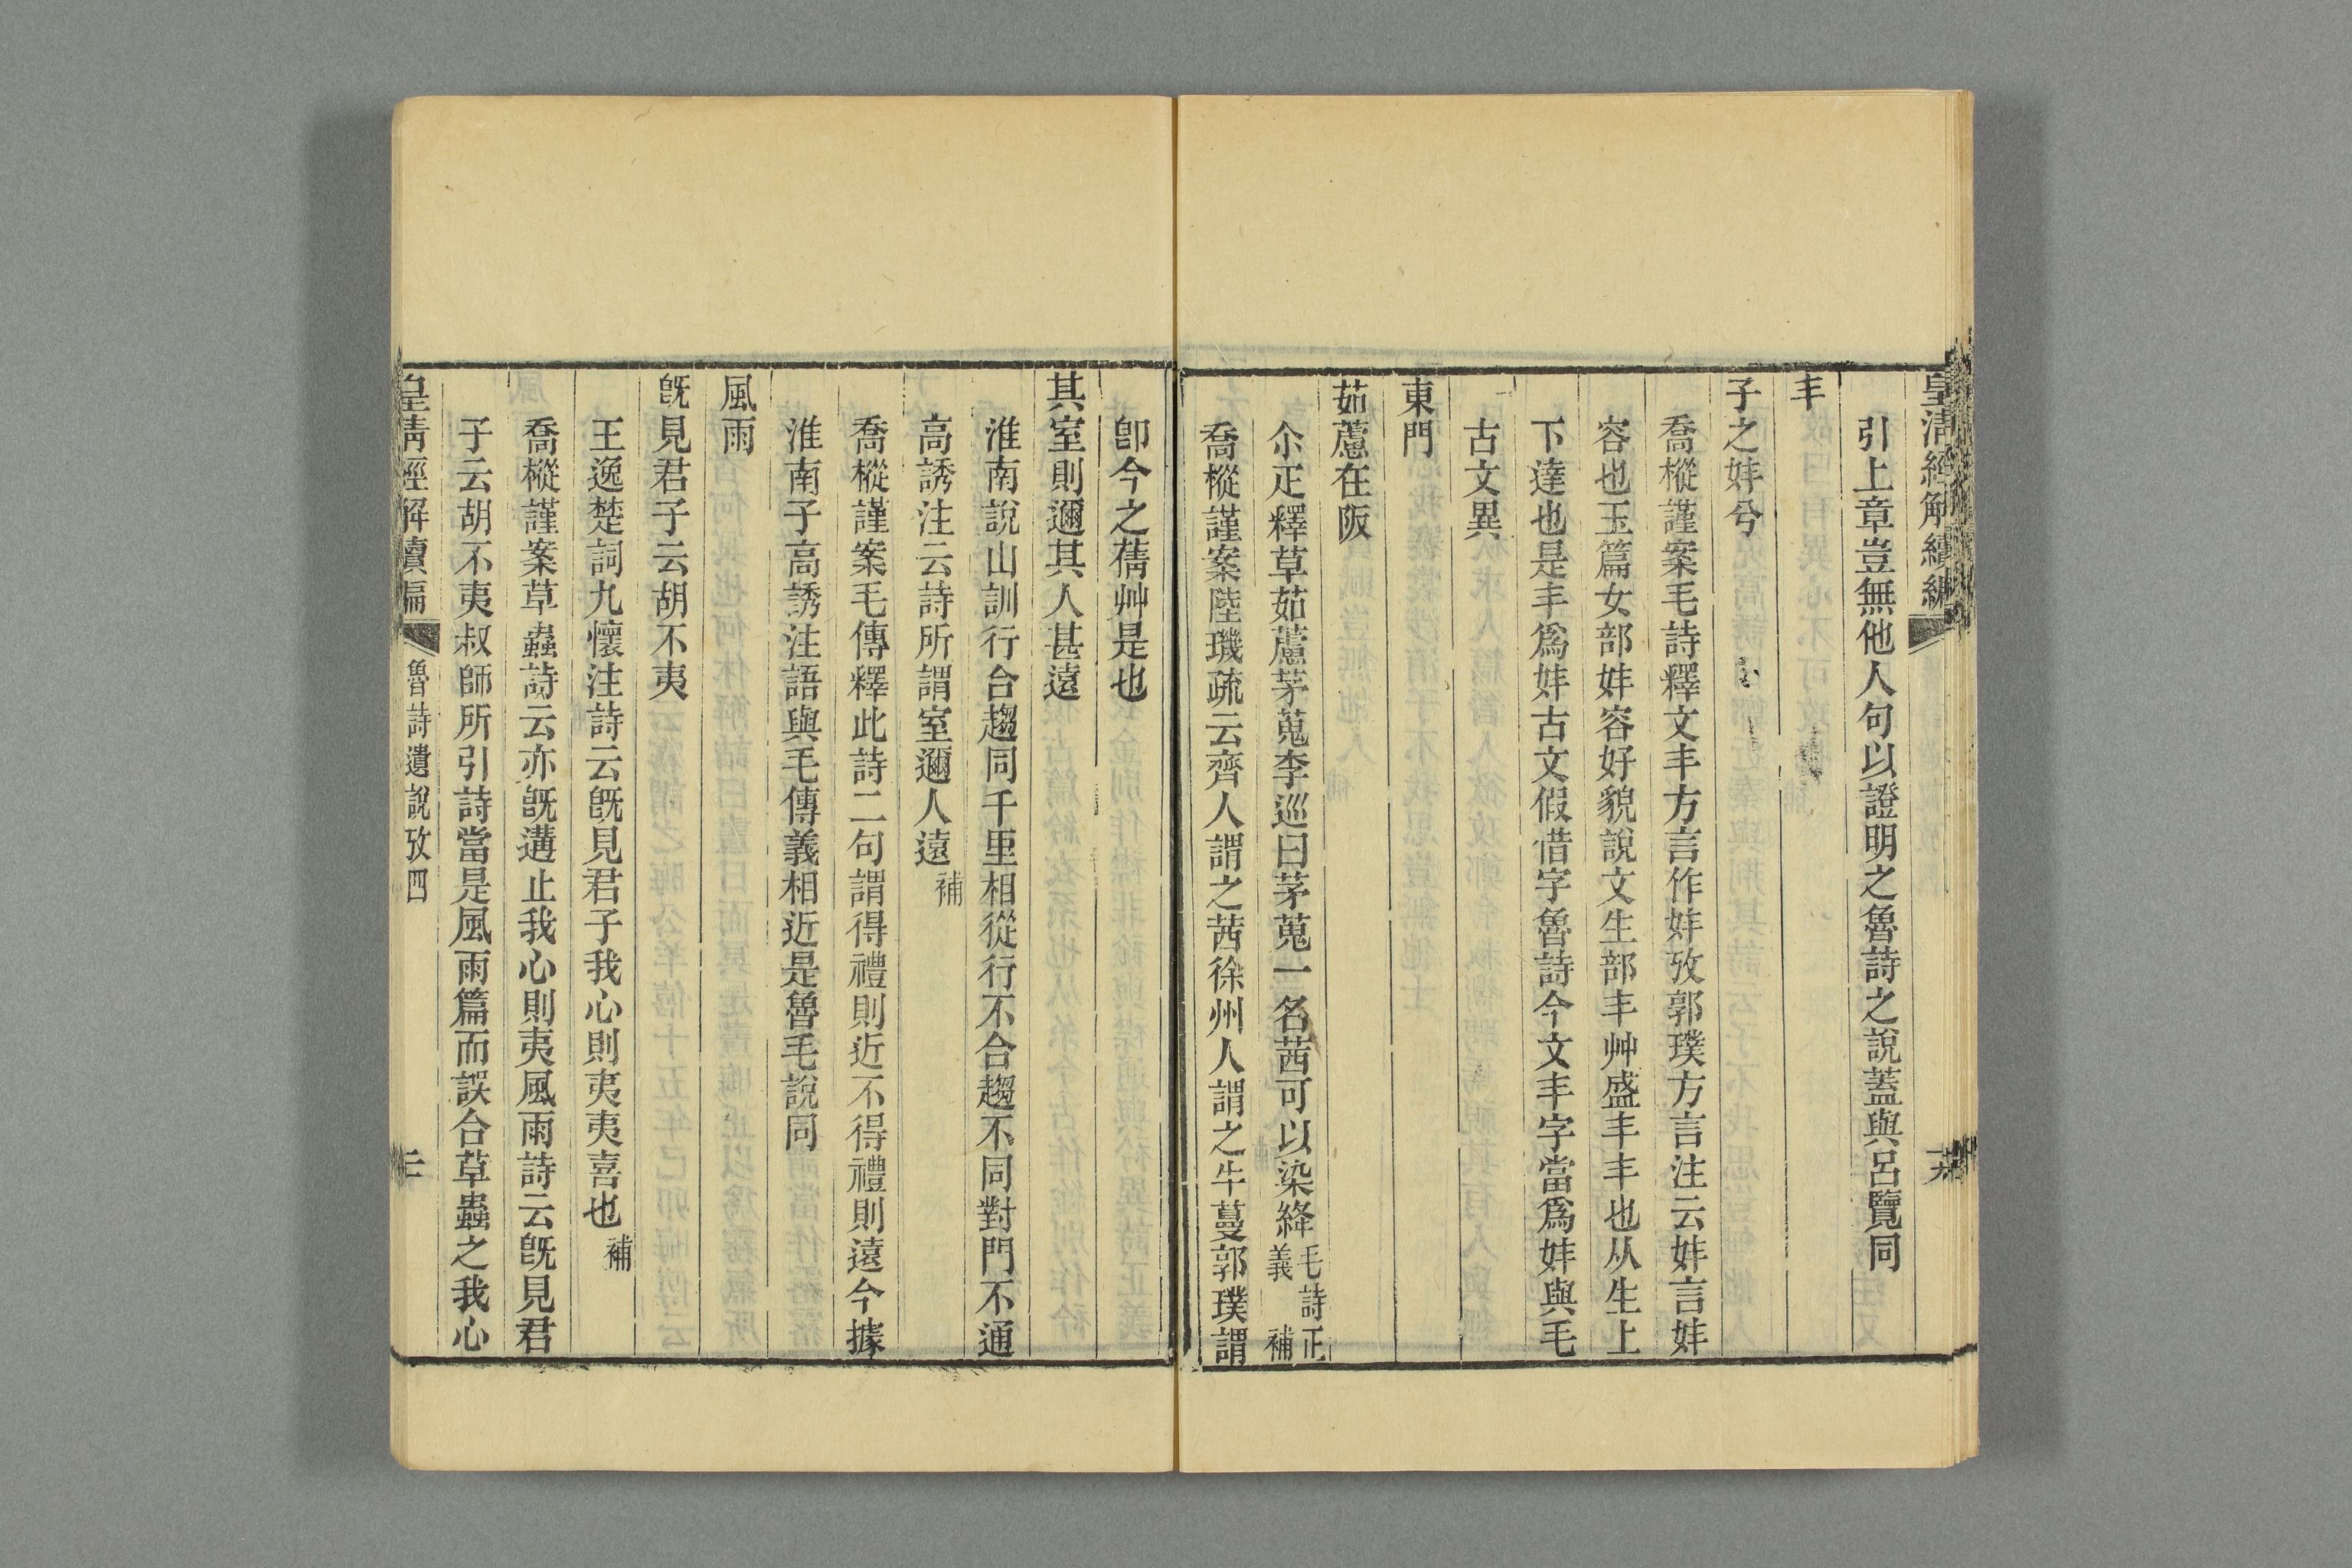 皇清經解續編
引上章豈無他人句以證明之魯詩之說蓋與呂覽同
丰
子之妦兮
喬樅謹案毛詩釋文丰方言作妦攷郭璞方言注云妦言妦
容也玉篇女部妦容好貌說文生部丰艸盛丰丰也从生上
下達也是丰爲妦古文假借字魯詩今文丰字當爲妦與毛
古文異
東門
茹藘在阪
尒疋釋草茹藘茅蒐李巡曰茅蒐一名茜可以染絳毛詩正義 補
喬樅謹案陸璣疏云齊人謂之茜徐州人謂之牛蔓郭璞謂
卽今之蒨艸是也
其室則邇其人甚遠
淮南說山訓行合趨同千里相從行不合趨不同對門不通
高誘注云詩所謂室邇人遠補
喬樅謹案毛傳釋此詩二句謂得禮則近不得禮則遠今據
淮南子高誘注語與毛傳義相近是魯毛說同
風雨
旣見君子云胡不夷
王逸楚詞九懷注詩云旣見君子我心則夷夷喜也補
喬樅謹案草蟲詩云亦旣遘止我心則夷風雨詩云旣見君
子云胡不夷叔師所引詩當是風雨篇而誤合草蟲之我心
皇清經解續編 魯詩遺說攷四